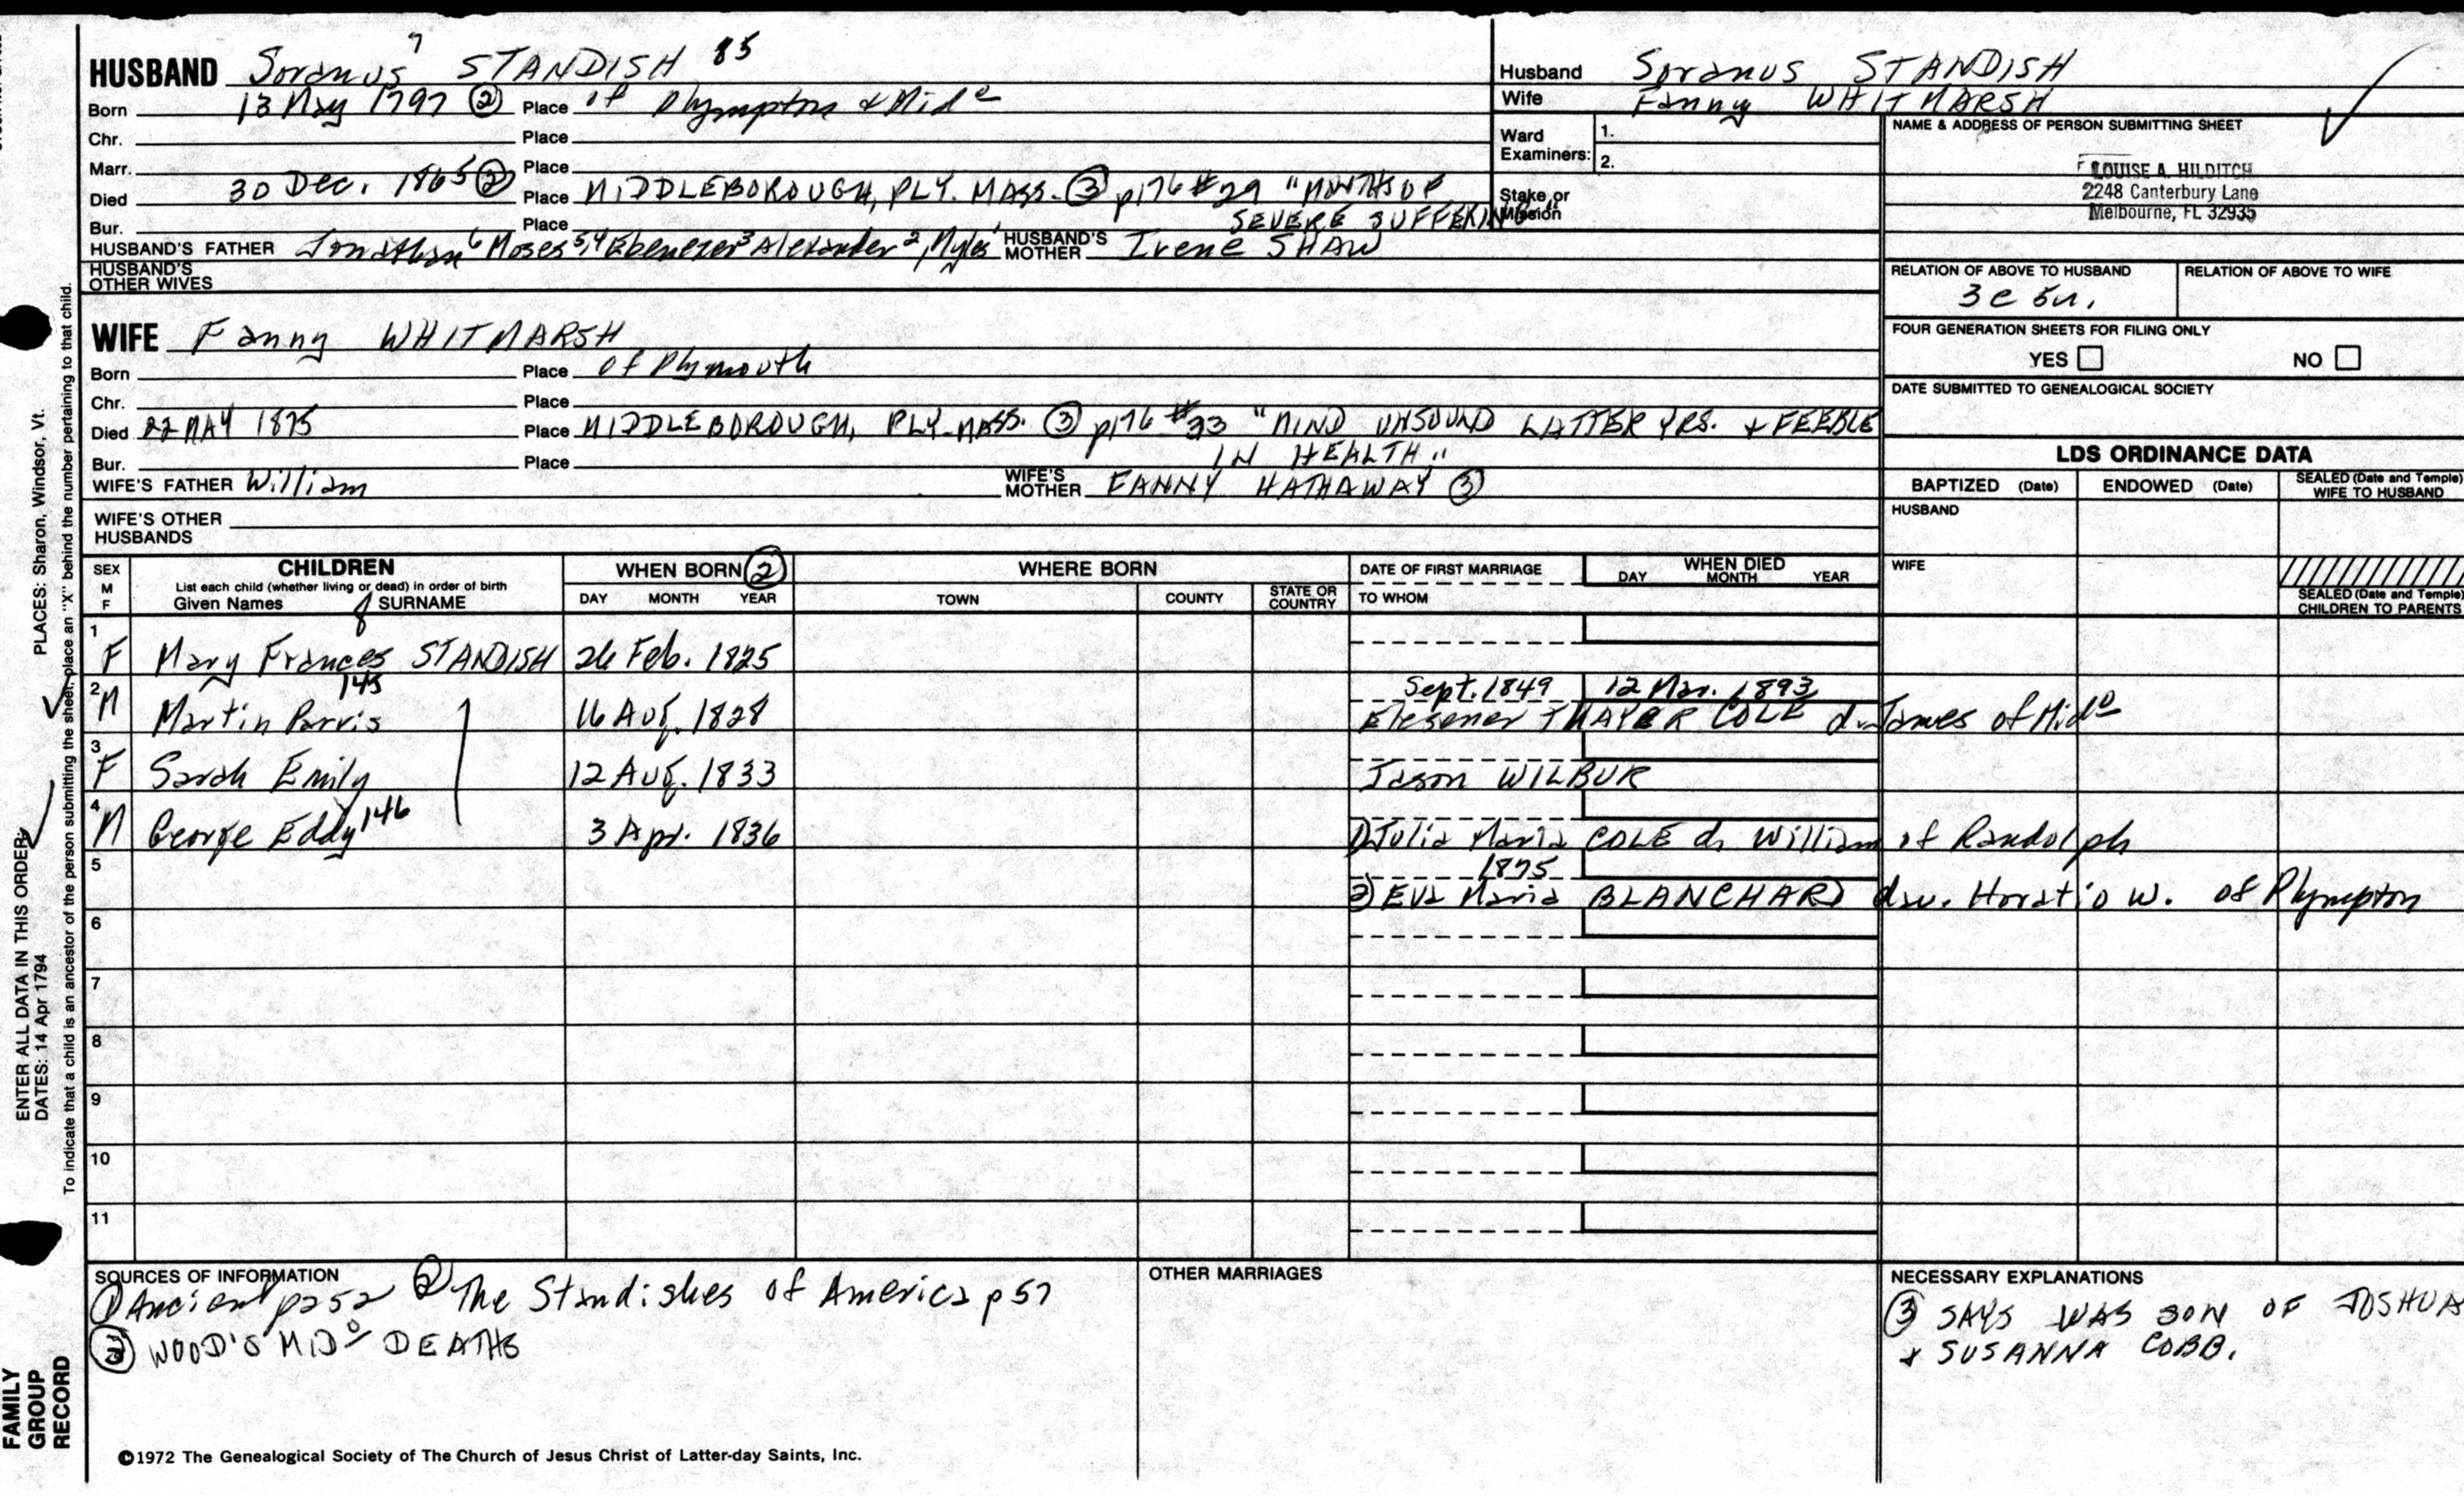 HUSBAND Soranus 7 STANDISH 85
Born 13 May 1797 ② Place of Plympton & Midº
Chr. Place
Marr. Place
Died 30 Dec. 1865 ② Place MIDDLEBOROUGH, PLY. MASS. ③ p176 #29 "MONTHS OF
Bur. Place SEVERE SUFFERING"
HUSBAND'S FATHER Jonathan 6 Moses 5,4 Ebenezer 3 Alexander 2, Myles 1 HUSBAND'S MOTHER Irene SHAW
HUSBAND'S OTHER WIVES
Husband Soranus STANDISH
Wife Fanny WHITMARSH
Ward Examiners: 1. 2.
Stake or Mission
NAME & ADDRESS OF PERSON SUBMITTING SHEET
LOUISE A. HILDITCH
2248 Canterbury Lane
Melbourne, FL 32935
RELATION OF ABOVE TO HUSBAND RELATION OF ABOVE TO WIFE
3c 5r.
FOUR GENERATION SHEETS FOR FILING ONLY
YES NO
DATE SUBMITTED TO GENEALOGICAL SOCIETY
WIFE Fanny WHITMARSH
Born Place of Plymouth
Chr. Place
Died 22 MAY 1875 Place MIDDLEBOROUGH, PLY. MASS. ③ p176 #33 "MIND UNSOUND LATTER YRS. & FEEBLE
Bur. Place IN HEALTH"
WIFE'S FATHER William WIFE'S MOTHER FANNY HATHAWAY ③
WIFE'S OTHER HUSBANDS
LDS ORDINANCE DATA
BAPTIZED (Date) ENDOWED (Date) SEALED (Date and Temple) WIFE TO HUSBAND
HUSBAND
WIFE
SEALED (Date and Temple) CHILDREN TO PARENTS
SEX M F
CHILDREN
List each child (whether living or dead) in order of birth
Given Names 8 SURNAME
WHEN BORN ②
DAY MONTH YEAR
WHERE BORN
TOWN COUNTY STATE OR COUNTRY
DATE OF FIRST MARRIAGE
TO WHOM
WHEN DIED
DAY MONTH YEAR
1 F Mary Frances STANDISH 26 Feb. 1825
2 M Martin Parris 145 16 Aug. 1828 Sept. 1849 12 Mar. 1893
THAYER COLE d. James of Midº
3 F Sarah Emily 12 Aug. 1833 Jason WILBUR
4 M George Eddy 146 3 Apr. 1836 1) Julia Maria COLE d. William of Randolph
5 1875
2) Eva Maria BLANCHARD dau. Horatio W. of Plympton
6
7
8
9
10
11
SOURCES OF INFORMATION
① Ancient p252 ② The Standishes of America p57
③ WOOD'S MIDº DEATHS
OTHER MARRIAGES
NECESSARY EXPLANATIONS
③ SAYS WAS SON OF JOSHUA
& SUSANNA COBB.
©1972 The Genealogical Society of The Church of Jesus Christ of Latter-day Saints, Inc.
FAMILY GROUP RECORD
ENTER ALL DATA IN THIS ORDER:
DATES: 14 Apr 1794 PLACES: Sharon, Windsor, Vt.
To indicate that a child is an ancestor of the person submitting the sheet, place an "X" behind the number pertaining to that child.